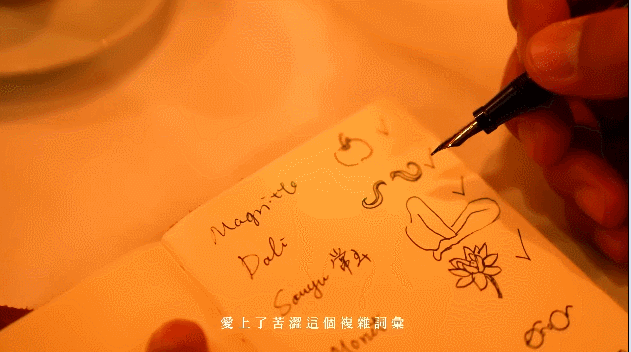 Magritte
Dali
Sanyu 常玉
Monet
愛上了苦澀這個複雜詞彙